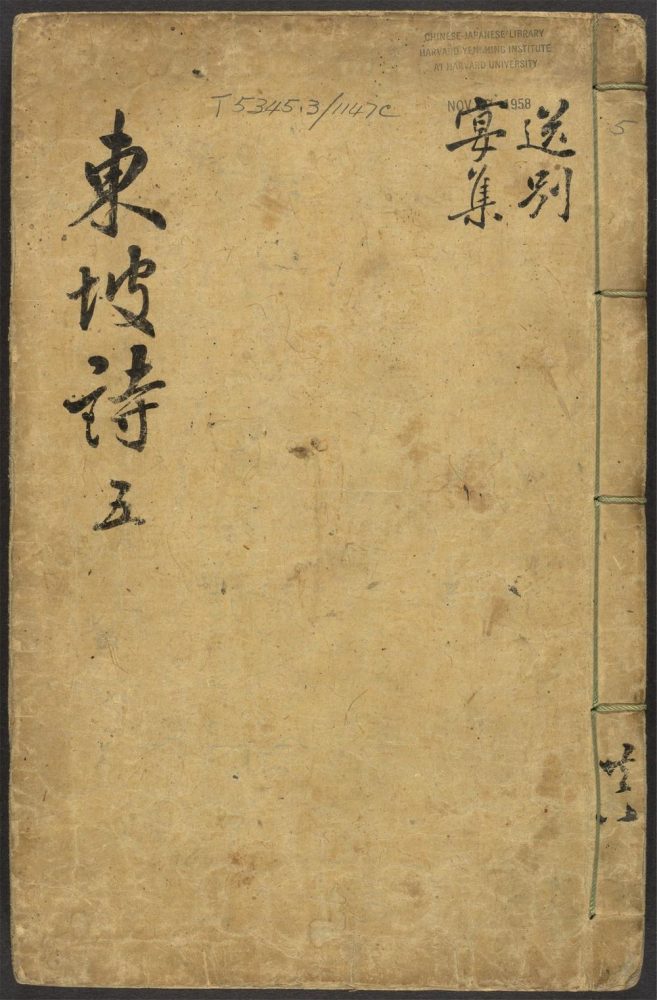 CHINESE-JAPANESE LIBRARY
HARVARD-YENCHING INSTITUTE
AT HARVARD UNIVERSITY
NOV 1958
T5345.3/1147c
5
送別
宴集
東坡詩 五